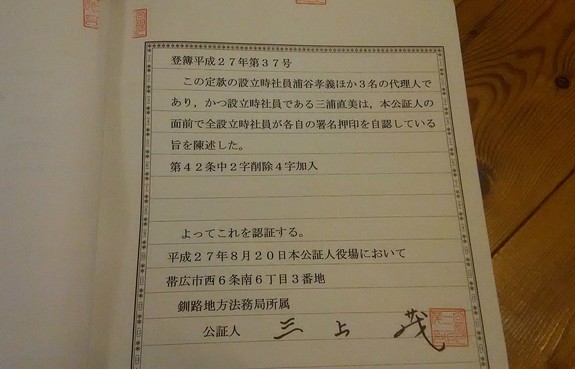 登簿平成２７年第３７号
この定款の設立時社員浦谷孝義ほか３名の代理人で
あり，かつ設立時社員である三浦直美は，本公証人の
面前で全設立時社員が各自の署名押印を自認している
旨を陳述した。
第４２条中２字削除４字加入
よってこれを認証する。
平成２７年８月２０日本公証人役場において
帯広市西６条南６丁目３番地
釧路地方法務局所属
公証人 三上茂